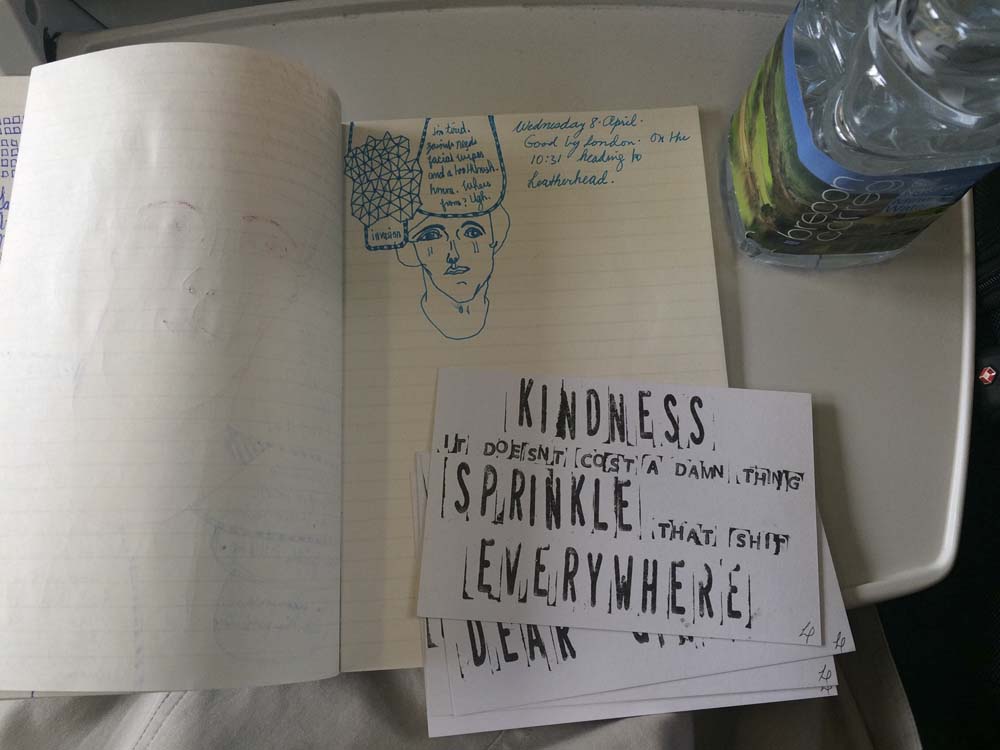 i'm tired.
needs
facial wipes
and a toothbrush.
home. Where
from? Ugh.
invasion
Wednesday 8. April.
Good by London. On the
10:31 heading to
Leatherhead.
brecon
carreg
KINDNESS
IT DOESN'T COST A DAMN THING
SPRINKLE
THAT SHIT
EVERYWHERE
DEAR